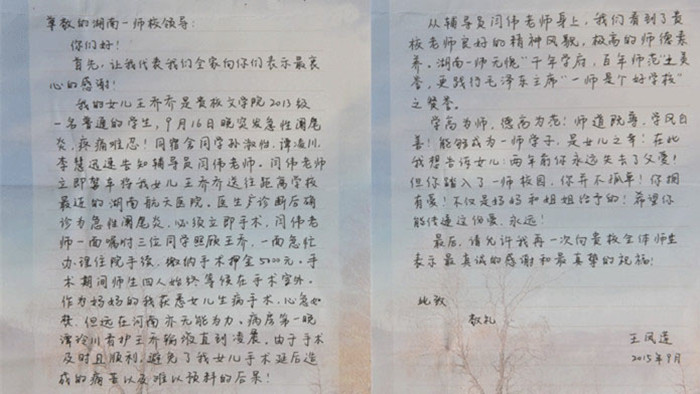 尊敬的湖南一师校领导:
你们好!
首先,让我代表我们全家向你们表示最衷
心的感谢!
我的女儿王乔乔是贵校文学院2013级
一名普通的学生,9月16日晚突发急性阑尾
炎,疼痛难忍!同宿舍同学孙淑怡、谭凌川、
李慧迅速告知辅导员闫伟老师。闫伟老师
立即驾车将我女儿王乔乔送往距离学校
最近的湖南航天医院。医生诊断后确
诊为急性阑尾炎,必须立即手术,闫伟老
师一面嘱咐三位同学照顾王乔,一面急忙
办理住院手续,缴纳手术押金5000元。手
术期间师生四人始终等候在手术室外。
作为妈妈的我获悉女儿生病手术,心急如
焚,但远在河南亦无能为力。病房第一晚
谭凌川看护王乔输液直到凌晨。由于手术
及时且顺利,避免了我女儿手术延后造
成的痛苦以及难以预料的后果!
从辅导员闫伟老师身上,我们看到了贵
校老师良好的精神风貌,极高的师德素
养。湖南一师无愧"千年学府,百年师范"之美
誉,更践行毛泽东主席"一师是个好学校"
之赞誉。
学高为师,德高为范!师道院尊,学风自
善!能够成为一师学子,是女儿之幸!在此
我想告诉女儿:两年前你永远失去了父爱!
但你踏入了一师校园,你并不孤单!你拥
有爱!不仅是妈妈和姐姐给予的!希望你
能传递这份爱,永远!
最后,请允许我再一次向贵校全体师生
表示最真诚的感谢和最真挚的祝福!
此致
敬礼
王凤莲
2015年9月